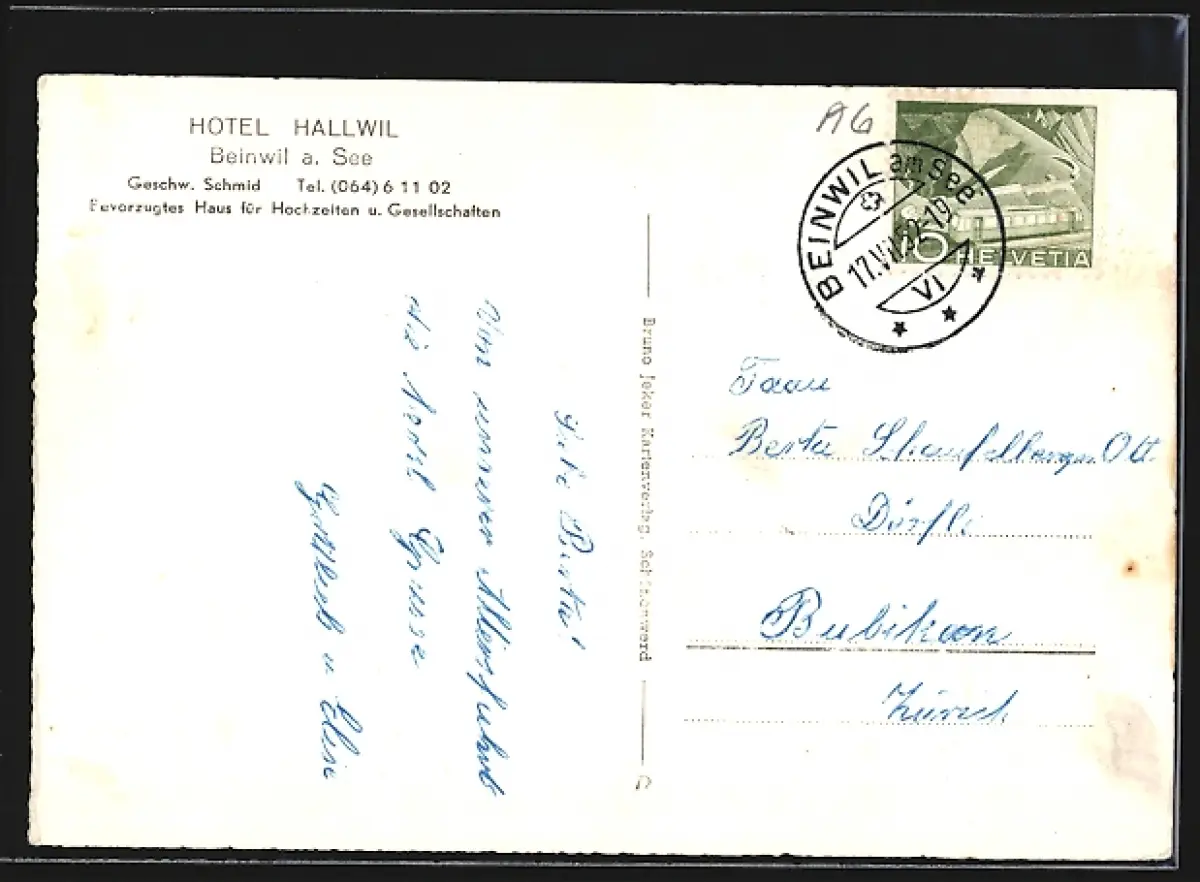 HOTEL HALLWIL
Beinwil a. See
Geschw. Schmid Tel. (064) 6 11 02
Bevorzugtes Haus für Hochzeiten u. Gesellschaften
Liebe Berta!
Von unserer
die Grüsse
u Elise
Bruno Jeker Kartenverlag, Schönenwerd
AG
BEINWIL am See
VI
10 HELVETIA
Frau
Berta Ott
Dörfli
Bubikon
Zürich